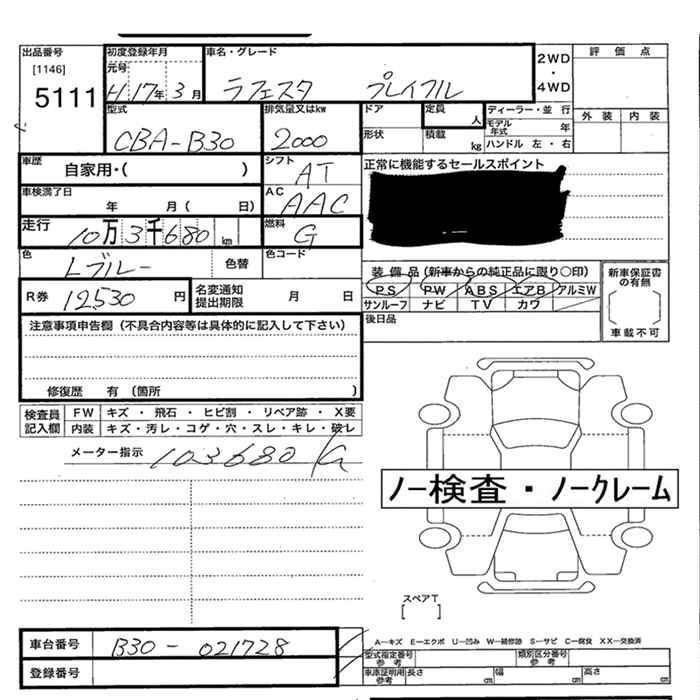 出品番号 初度登録年月 車名・グレード 2WD・4WD 評価点
[1146] 元号
5111 H17年3月 ラフェスタ プレイフル
型式 排気量又はkw ドア 定員 人 ディーラー・並行 外装 内装
CBA-B30 2000 形状 積載 kg モデル年式 年
ハンドル 左・右
車歴 自家用・( ) シフト AT 正常に機能するセールスポイント
車検満了日 年 月( 日) AC AAC
走行 10万3千680km 燃料 G
色 Lブルー 色替 色コード
装備品(新車からの純正品に限り○印) 新車保証書の有無
R券 12530円 名変通知提出期限 月 日 PS PW ABS エアB アルミW
サンルーフ ナビ TV カワ 車載不可
注意事項申告欄(不具合内容等は具体的に記入して下さい) 後日品
修復歴 有(箇所 )
検査員記入欄 FW キズ・飛石・ヒビ割・リペア跡・X要
内装 キズ・汚レ・コゲ・穴・スレ・キレ・破レ
メーター指示 103680
ノー検査・ノークレーム
スペアT
[ ]
車台番号 B30-021728
A-キズ E-エクボ U-凹み W-補修跡 S-サビ C-腐食 XX-交換済
登録番号
型式指定番号 参考 類別区分番号 参考
車庫証明用 参考 長さ cm 幅 cm 高さ cm